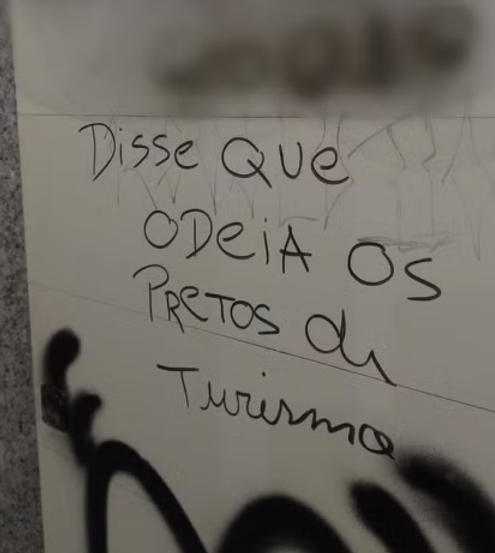 Disse QUe
ODeiA OS
PReTOS de
Turismo